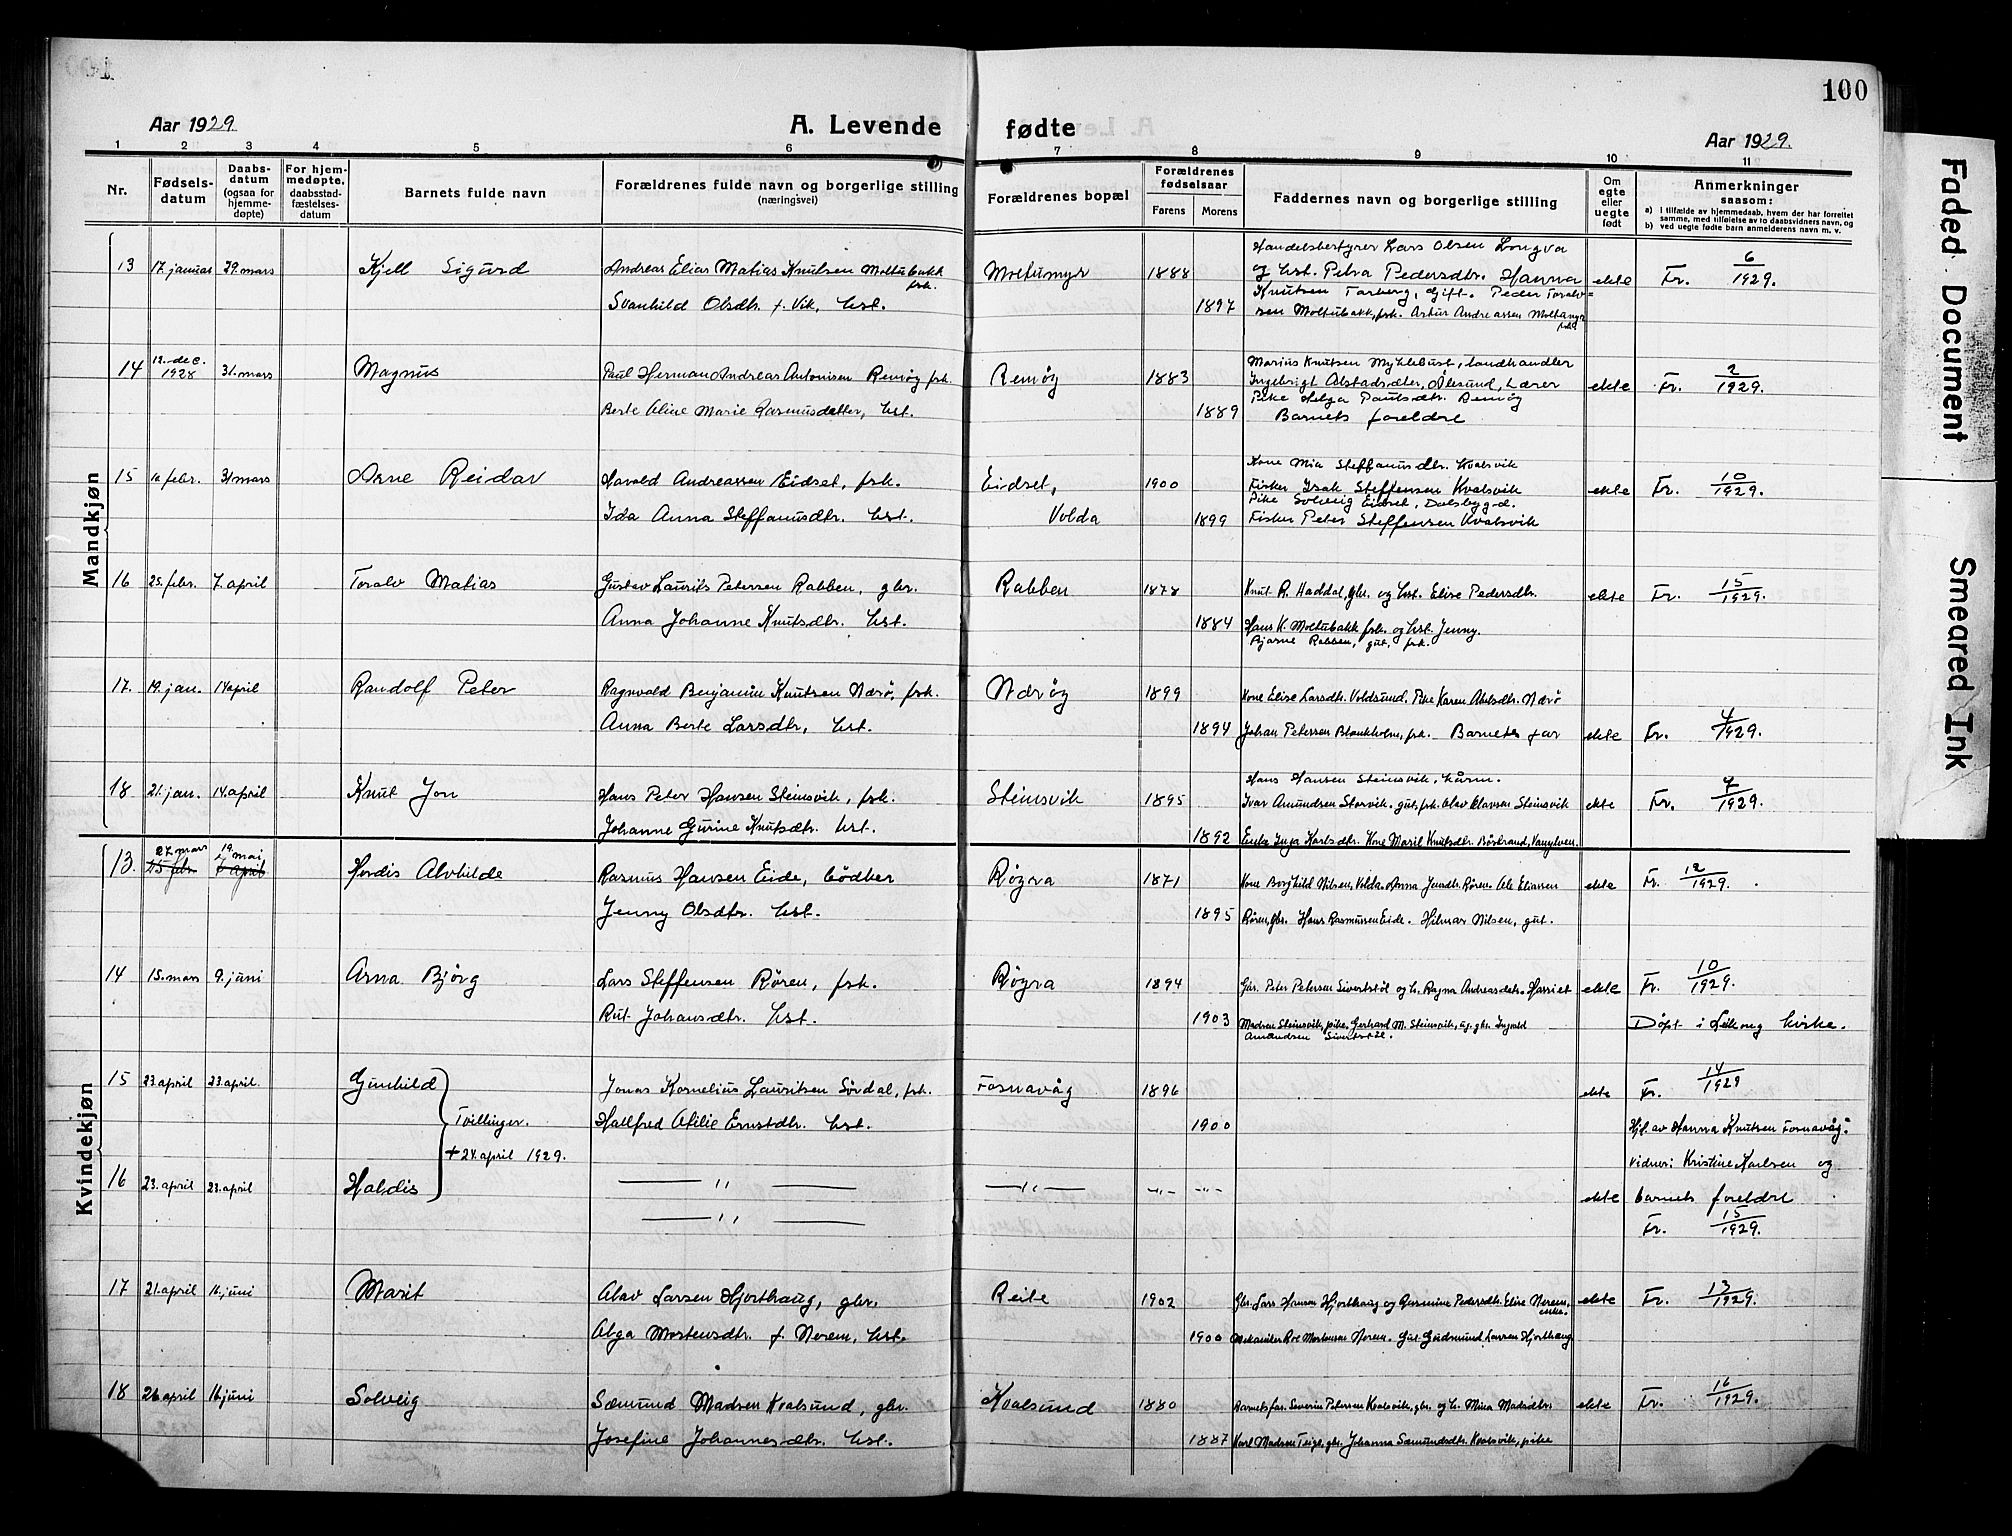 100
Aar 1929.
A. Levende fødte
Aar 1929.
1 2 3 4 5 6 7 8 9 10 11
Nr.
Fødsels-
datum
Daabs-
datum
(ogsaa for
hjemme-
døpte)
For hjem-
medøpte,
daabsstad-
fæstelses-
datum
Barnets fulde navn
Forældrenes fulde navn og borgerlige stilling
(næringsvei)
Forældrenes bopæl
Forældrenes
fødselsaar
Farens Morens
Faddernes navn og borgerlige stilling
Om
egte
eller
uegte
født
Anmerkninger
saasom:
a) I tilfælde av hjemmedaab, hvem der har forrettet
samme, med tilføielse av to daabsvidners navn, og
b) ved uegte fødte barn anmelderens navn m. v.
Mandkjøn
13 17 januar 29. mars Kjell Sigurd Andreas Elias Matias Knutsen Moltubakk
fsk.
Svanhild Olsdtr. f. Vik, hst.
Moltumyr 1888
1897
Handelsbestyrer Lars Olsen Longva
og hst. Petra Pedersdtr. Hanna
Knutsen Tarberg, gift. Peder Toralv=
sen Moltubakk, fsk. Artur Andreassen Moltumyr
fsk.
ekte Fr. 6/1929.
14 12. dec. 1928 31. mars Magnus Paul Herman Andreas Antonisen Remøy fsk.
Berte Oline Marie Rasmusdatter, hst.
Remøy 1883
1889
Marius Knutsen Myklebust, landhandler
Ingebrigt Alstadsæter, Ålesund, Lærer
Pike Helga Paulsdtr. Remøy
Barnets foreldre
ekte Fr. 2/1929.
15 10 febr. 31 mars Arne Reidar Harald Andreassen Eidset, fsk.
Ida Anna Steffanusdtr. hst.
Eidset,
Volda
1900
1899
Kone Mia Steffanusdtr. Kvalsvik
Fisker Isak Steffensen Kvalsvik
Pike Solveig Eidset, Dalsbygd.
Fisker Peter Steffensen Kvalsvik
ekte Fr. 10/1929.
16 25. febr. 7. april Toralv Matias Gustav Laurits Petersen Rabben, gbr.
Anna Johanne Knutsdtr. hst.
Rabben 1878
1884
Knut R. Haddal, gbr. og hst. Elise Pedersdtr.
Hans K. Moltubakk fsk. og hst. Jenny.
Bjarne Rabben, gut, fsk.
ekte Fr. 15/1929.
17. 19. jan. 14 april Randolf Peter Ragnvald Benjamin Knutsen Nærø, fsk.
Anna Berte Larsdtr, hst.
Nærøy 1899
1894
Kone Elise Larsdtr. Voldsund. Pike Karen Abelsdtr. Nærø
Johan Petersen Blankholm, fsk. Barnets far
ekte Fr. 4/1929.
18 21. jan. 14. april Knut Jon Hans Peter Hansen Steinsvik, fsk.
Johanne Gurine Knutsdtr. hst.
Steinsvik 1895
1892
Hans Hansen Steinsvik, kårm.
Ivar Amundsen Storvik. gut, fsk. Olav Olavsen Steinsvik
Enke Inga Karlsdtr. Kone Marit Knutsdtr. Båstrand, Vanylven.
ekte Fr. 9/1929.
Kvindekjøn
13. 27. mars 19 mai
15 febr. 7 april
Hordis Alvhilde Rasmus Hansen Eide, bødker
Jenny Olsdtr. hst.
Røyra 1871
1895
Kone Borghild Nilsen, Volda. Anna Jensdtr. Røren. Ole Eliassen
Røren, gbr. Hans Rasmussen Eide. Hilmar Nilsen, gut.
ekte Fr. 12/1929.
14 15. mars 9. juni Arna Bjørg Lars Steffensen Røren, fsk.
Rut Johansdtr. hst.
Røyra 1894
1903
Gbr. Peter Petersen Sivertstøl og h. Ragna Andreasdtr. Harriet
Madsen Steinsvik, pike. Gerhard M. Steinsvik, ug. gbr. Ingvald
Amandsen Sivertstøl.
ekte Fr. 10/1929.
Døpt i Leikong kirke.
15 23. april 23. april. Gunhild Jonas Kornelius Lauritsen Sørdal, fsk.
Tvillinger. Hallfred Otilie Ernstdtr. hst.
+ 24. april 1929.
Fosnavåg 1896
1900
ekte Fr. 14/1929
Hj. av Hanna Knutsen Fosnavåg.
vidner: Kristine Karlsen og
barnets foreldre
16 23. april 23. april Haldis — " —
— " —
— " — - " - - " -
ekte
Fr. 15/1929.
17 21. april 16. juni Marit Olav Larsen Hjorthaug, gbr.
Olga Mortensdtr. f. Nerem, hst.
Reite 1902
1900
Gbr. Lars Hansen Hjorthaug og Rasmine Pedersdtr. Elise Nerem,
enke.
Mekaniker Roe Mortensen Nerem. Gut Gudmund Larsen Hjorthaug
ekte Fr. 13/1929.
18 26 april 16 juni Solveig Sæmund Madsen Kvalsund, gbr.
Josefine Johannesdtr. hst.
Kvalsund 1880
1887
Barnets far. Severin Petersen Kvalsvik, gbr. og h. Mina Madsdtr.
Karl Madsen Teige, gbr. Johanna Sæmundsdtr. Kvalsvik, pike
ekte Fr. 16/1929.
Faded Document
Smeared Ink